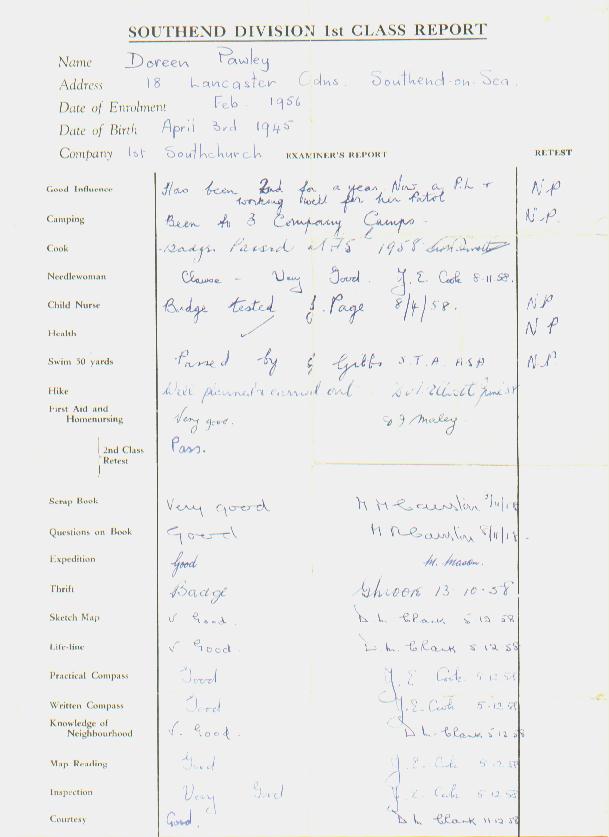 SOUTHEND DIVISION 1st CLASS REPORT
Name Doreen Pawley
Address 18 Lancaster Gdns. Southend-on-Sea.
Date of Enrolment Feb. 1956
Date of Birth April 3rd 1945
Company 1st Southchurch EXAMINER'S REPORT RETEST
Good Influence Has been 2nd for a year. Now a P.L +
working well for her Patrol NP
Camping Been to 3 Company Camps. N.P.
Cook Badge Passed 1958
Needlewoman Clause - Very Good. J. E. Cook 8.11.58.
Child Nurse Badge tested Page 8/4/58. NP
Health ✓ NP
Swim 50 yards Passed by Gibbs S.T.A. ASA NP
Hike Well planned & carried out
First Aid and
Homenursing Very good. Maley.
2nd Class
Retest Pass.
Scrap Book Very good
Questions on Book Good
Expedition Good M. Mason.
Thrift Badge 13.10.58
Sketch Map V Good. D L. Clark 5 12 58
Life-line V Good. D L. Clark 5 12 58
Practical Compass Good J. E. Cook 5.12.58
Written Compass Good J. E. Cook 5.12.58
Knowledge of
Neighbourhood V. Good. D L. Clark 5 12 58
Map Reading Good J. E. Cook 5.12.58
Inspection Very Good J. E. Cook 5.12.58
Courtesy Good. D L. Clark 11.12.58